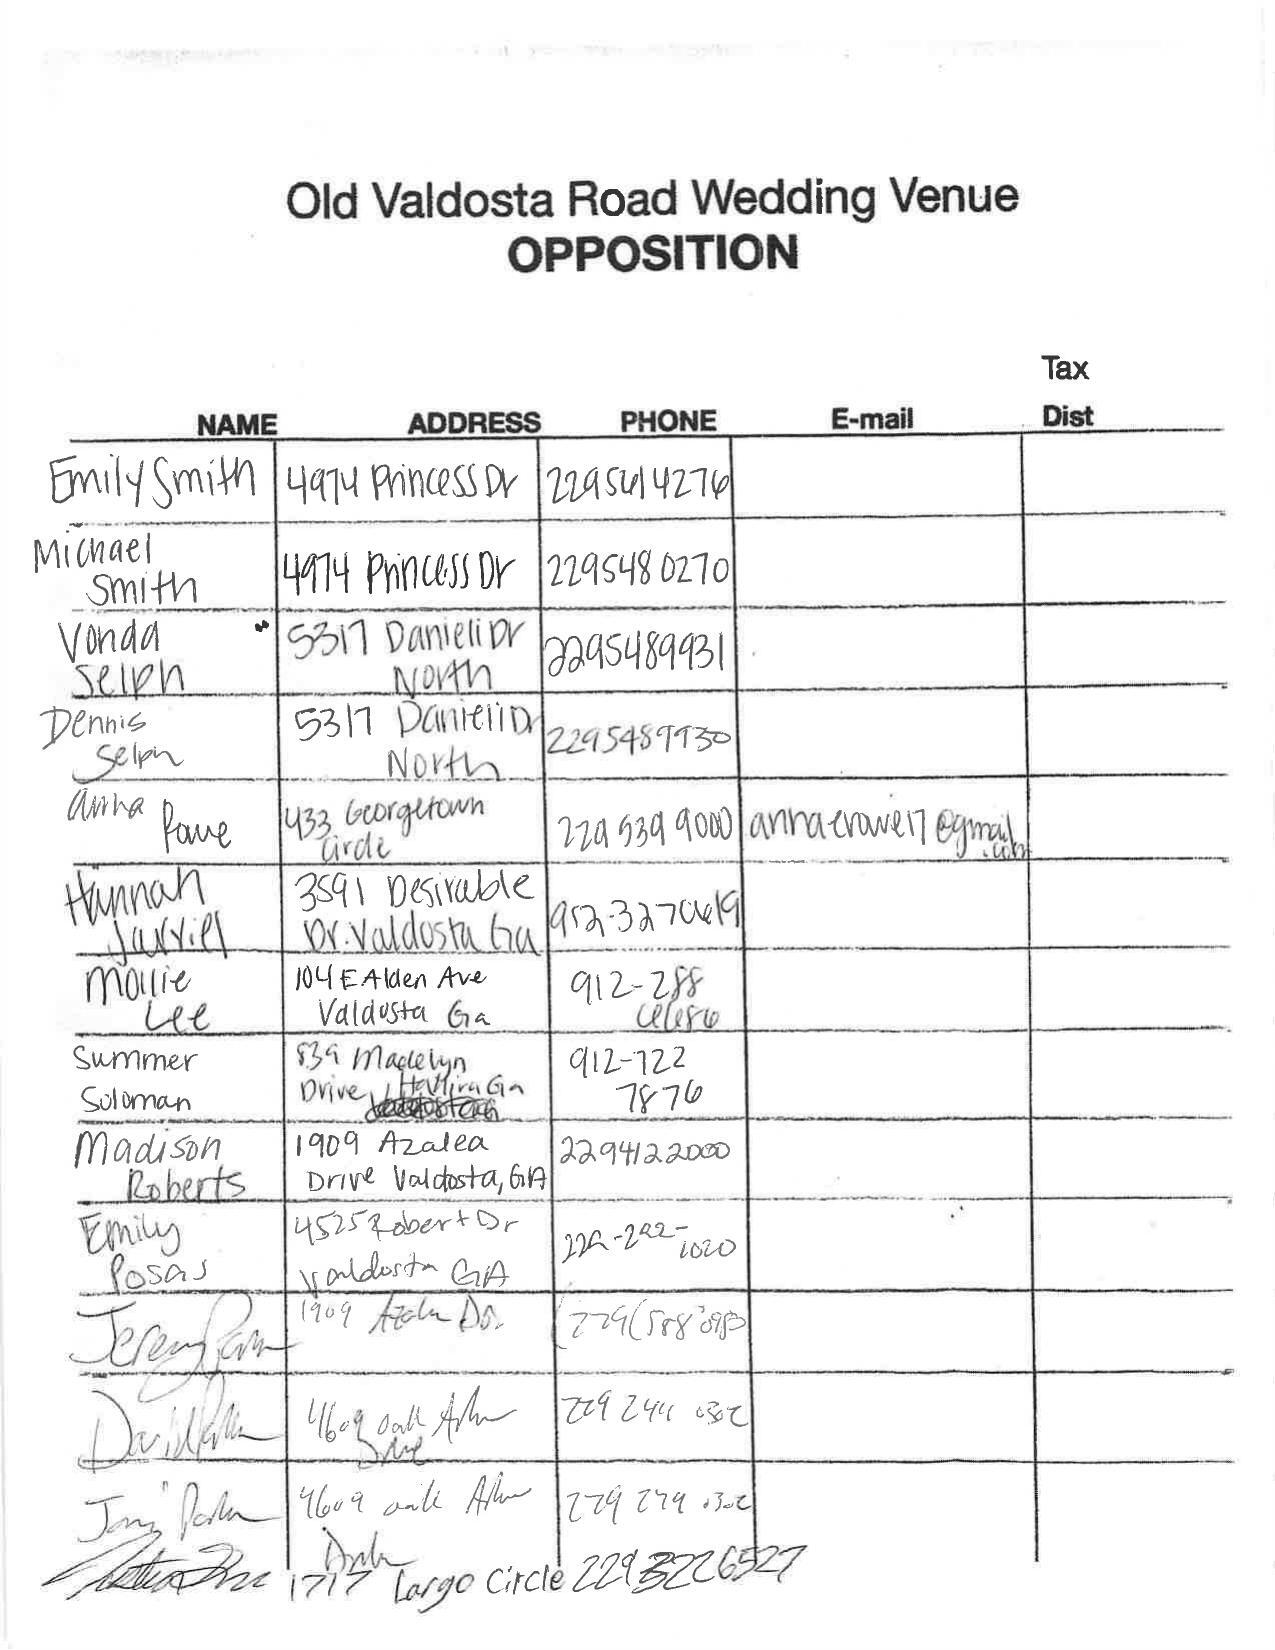 Old Valdosta Road Wedding Venue
OPPOSITION
Tax
NAME ADDRESS PHONE E-mail Dist
Emily Smith 4974 Princess Dr 2295614276
Michael 4974 Princess Dr 2295480270
Smith
Vonda 5317 Danieli Dr 2295489931
Selph North
Dennis 5317 Danieli Dr 2295489930
Selph North
Anna 433 Georgetown 229 539 9000 annacrowe17@gmail
Circle .com
Hannah 3591 Desirable
Dr. Valdosta Ga
Mollie 104 E Alden Ave 912-288
Lee Valdosta Ga
Summer 839 Madelyn 912-722
Soloman Drive, Hahira Ga 7876
Madison 1909 Azalea 2294122000
Roberts Drive Valdosta, GA
Emily 4525 Robert Dr 229-292-
Rosas Valdosta GA 1020
Jeremy 1909 Azalea Dr.
David 4609 Oak 229 244 0302
Drive
4609 oak 229 279 0302
1717 Largo Circle 2293226527